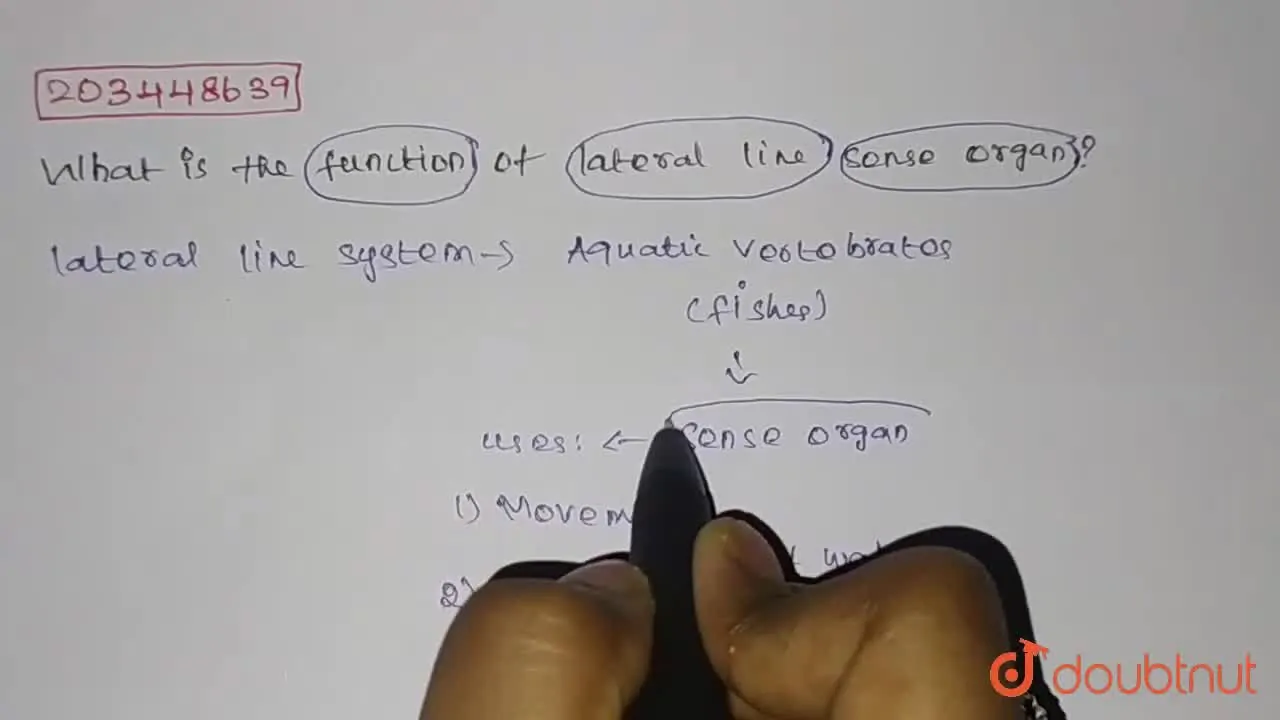 203448639
What is the function of lateral line sense organ?
lateral line system → Aquatic Vertebrates
(fishes)
↓
uses: ← sense organ
1) Movem
2)
doubtnut